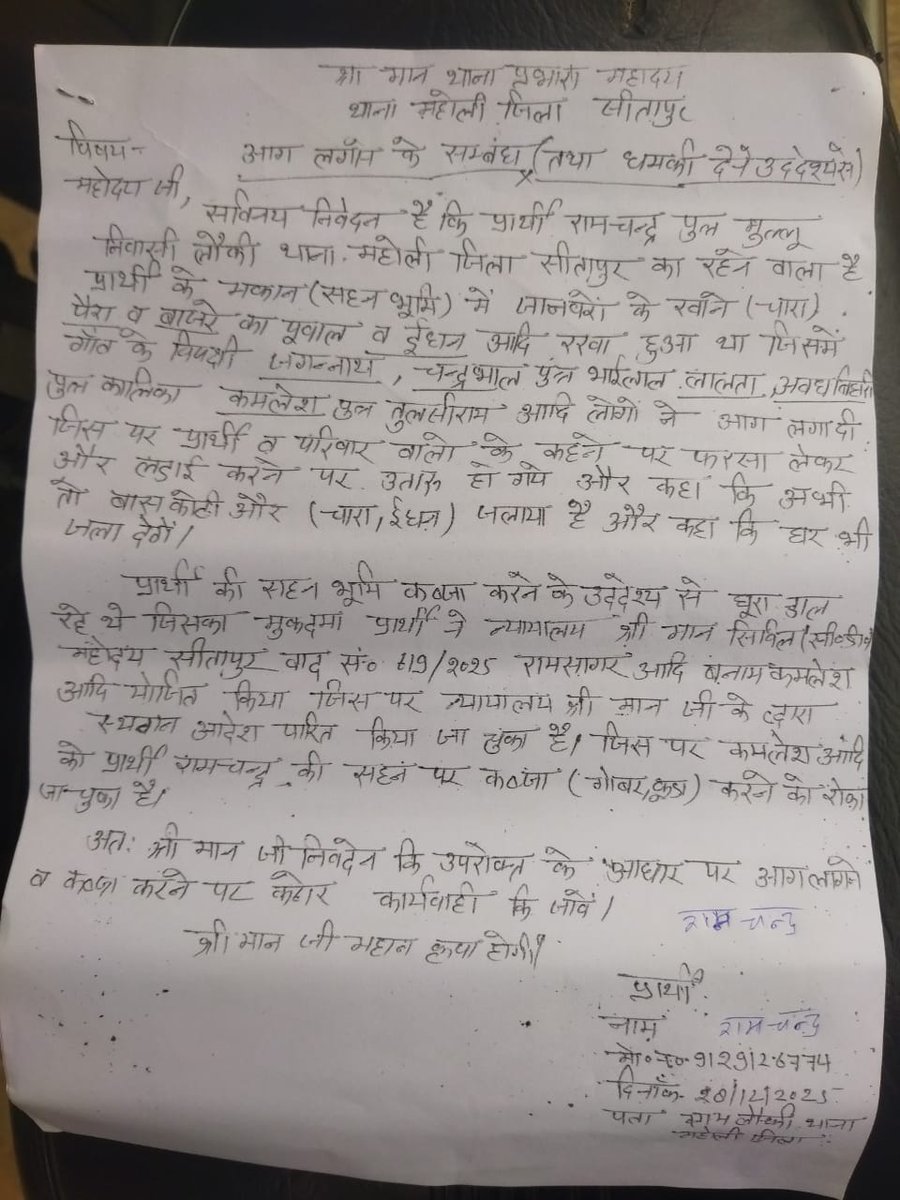 श्री मान थाना प्रभारी महोदय
थाना महोली जिला सीतापुर
विषय- आग लगाने के सम्बंध (तथा धमकी देने उद्देश्य से)
महोदय जी,
सविनय निवेदन है कि प्रार्थी रामचन्द्र पुत्र मुल्लू
निवासी लौकी थाना. महोली जिला सीतापुर का रहने वाला है
प्रार्थी के मकान (सहन भूमि) में जानवरों के खाने (चारा).
पैरा व बाजरे का पूवाल व ईधन आदि रखा हुआ था जिसमें
गाँव के विपक्षी जगन्नाथ, चन्द्रभाल पुत्र भाईलाल लालता, अवधबिहारी
पुत्र कालिका कमलेश पुत्र तुलसीराम आदि लोगों ने आग लगा दी
जिस पर प्रार्थी व परिवार वालो के कहने पर फरसा लेकर
और लड़ाई करने पर उतारू हो गये और कहा कि अभी
तो बास कोठी और (चारा, ईधन) जलाया है और कहा कि घर भी
जला देगें।
प्रार्थी की सहन भूमि कब्जा करने के उददेश्य से घूरा डाल
रहे थे जिसका मुकदमा प्रार्थी ने न्यायालय श्री मान सिविल
महोदय सीतापुर वाद सं० 619/2025 रामसागर आदि बनाम कमलेश
आदि योजित किया जिस पर न्यायालय श्री मान जी के द्वारा
स्थगन आदेश पारित किया जा चुका है। जिस पर कमलेश आदि
को प्रार्थी रामचन्द्र की सहन पर कब्जा (गोबर, कूड़ा) करने को रोका
जा चुका है।
अत: श्री मान जी निवदेन कि उपरोक्त के आधार पर आग लगाने
व कब्जा करने पर कठोर कार्यवाही कि जावें।
राम चन्द्र
श्री मान जी महान कृपा होगी।
प्रार्थी
नाम राम चन्द्र
मो० न०- 9129126774
दिनाँक- 20/12/2025
पता ग्राम लौकी थाना
महोली जिला